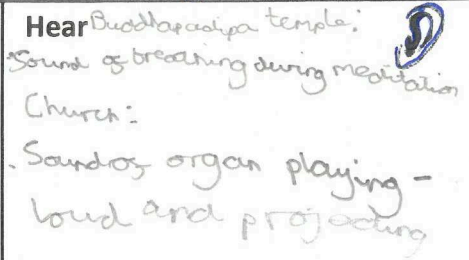 Hear Buddhapadipa temple:
·Sound of breathing during meditation
Church:
·Sound of organ playing -
loud and projecting